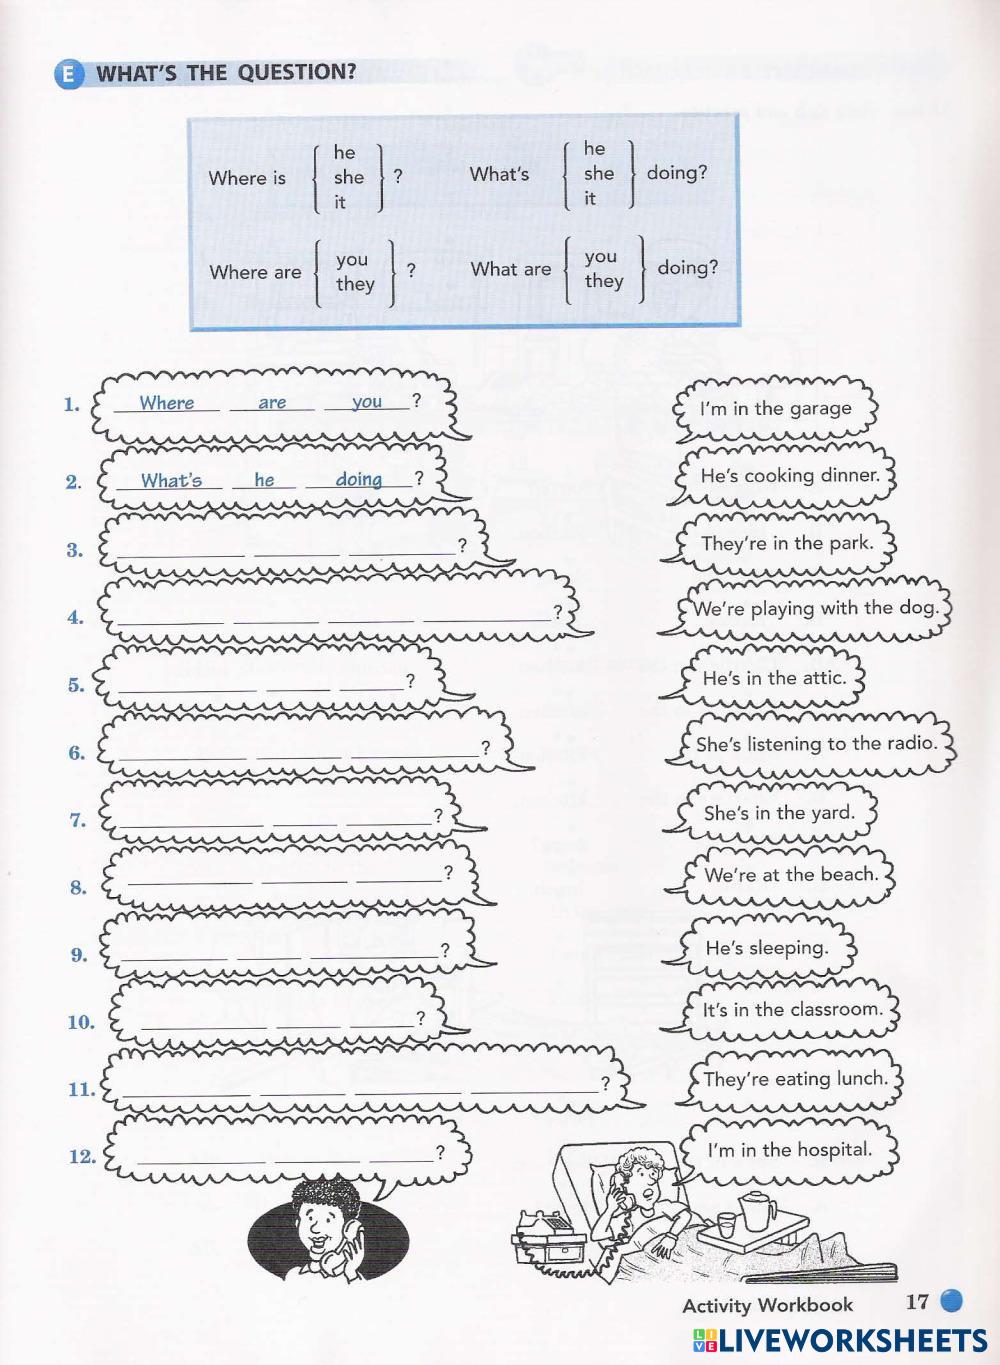 E WHAT'S THE QUESTION?
Where is { he she it } ? What's { he she it } doing?
Where are { you they } ? What are { you they } doing?
1. Where are you ? I'm in the garage
2. What's he doing ? He's cooking dinner.
3. ____ ____ ____? They're in the park.
4. ____ ____ ____ ____? We're playing with the dog.
5. ____ ____ ____? He's in the attic.
6. ____ ____ ____? She's listening to the radio.
7. ____ ____? She's in the yard.
8. ____ ____ ____? We're at the beach.
9. ____ ____ ____? He's sleeping.
10. ____ ____ ____? It's in the classroom.
11. ____ ____ ____ ____? They're eating lunch.
12. ____ ____ ____? I'm in the hospital.
Activity Workbook 17
LIVE LIVEWORKSHEETS